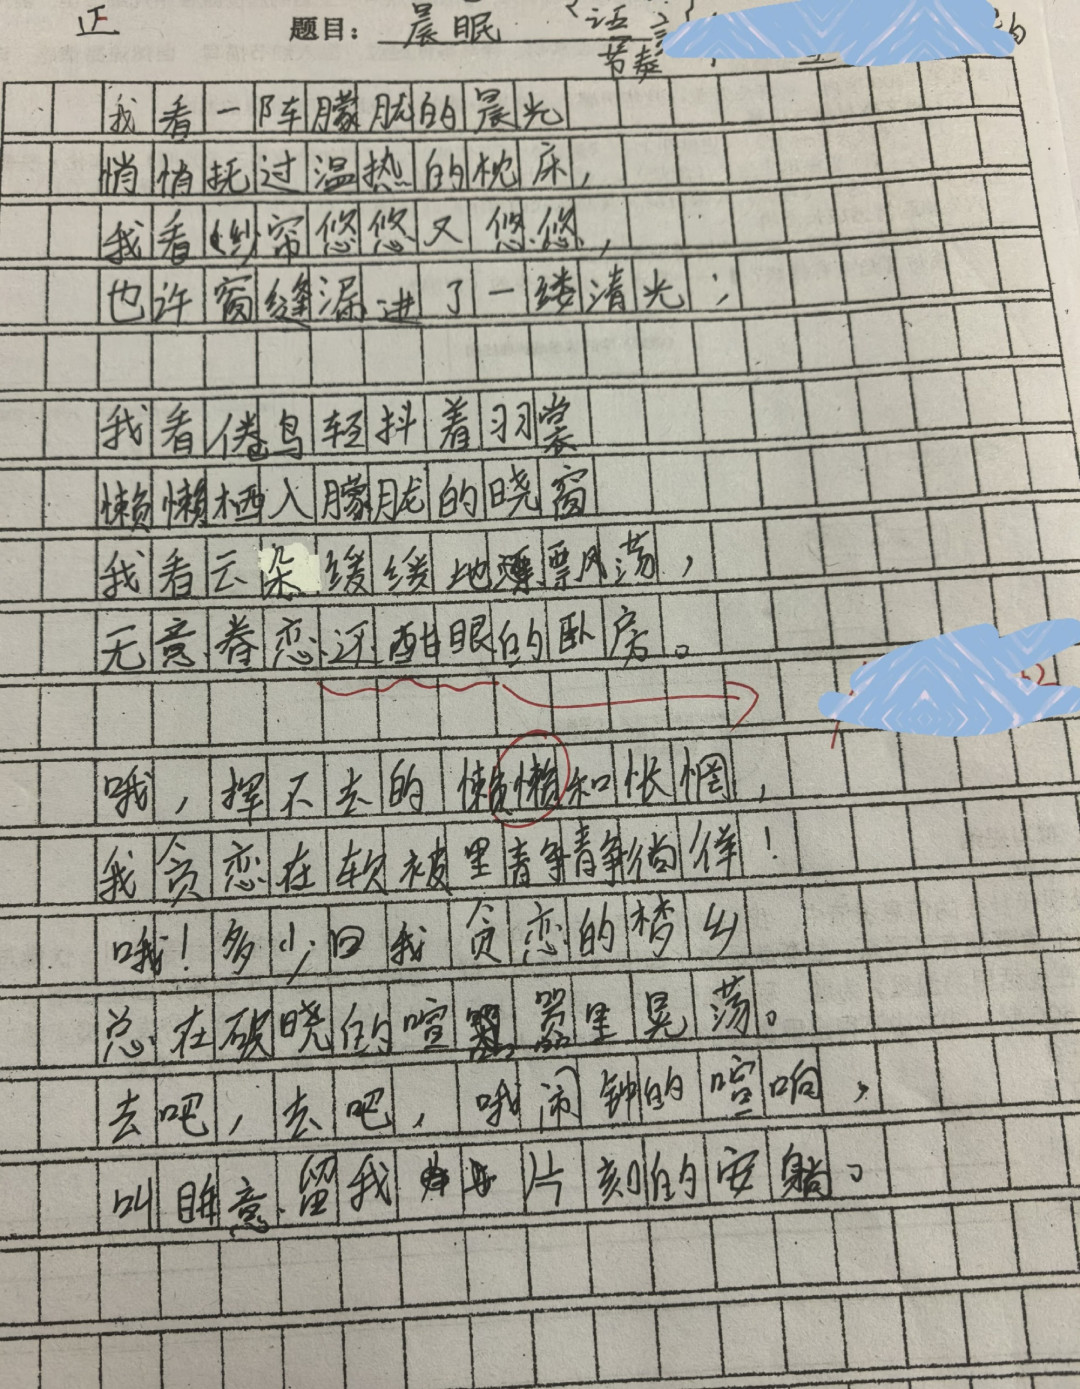 正
题目：晨眠
节奏
我看一阵朦胧的晨光
悄悄抚过温热的枕床，
我看纱帘悠悠又悠悠，
也许窗缝漏进了一缕清光；
我看倦鸟轻抖着羽裳
懒懒栖入朦胧的晓窗
我看云朵缓缓地飘飘荡，
无意眷恋还酣眠的卧房。
哦，挥不去的懒懒和怅惘，
我贪恋在软被里静静徜徉！
哦！多少回我贪恋的梦乡
总在破晓的喧嚣里晃荡。
去吧，去吧，哦闹钟的喧响，
叫睡意留我片刻的安躺。